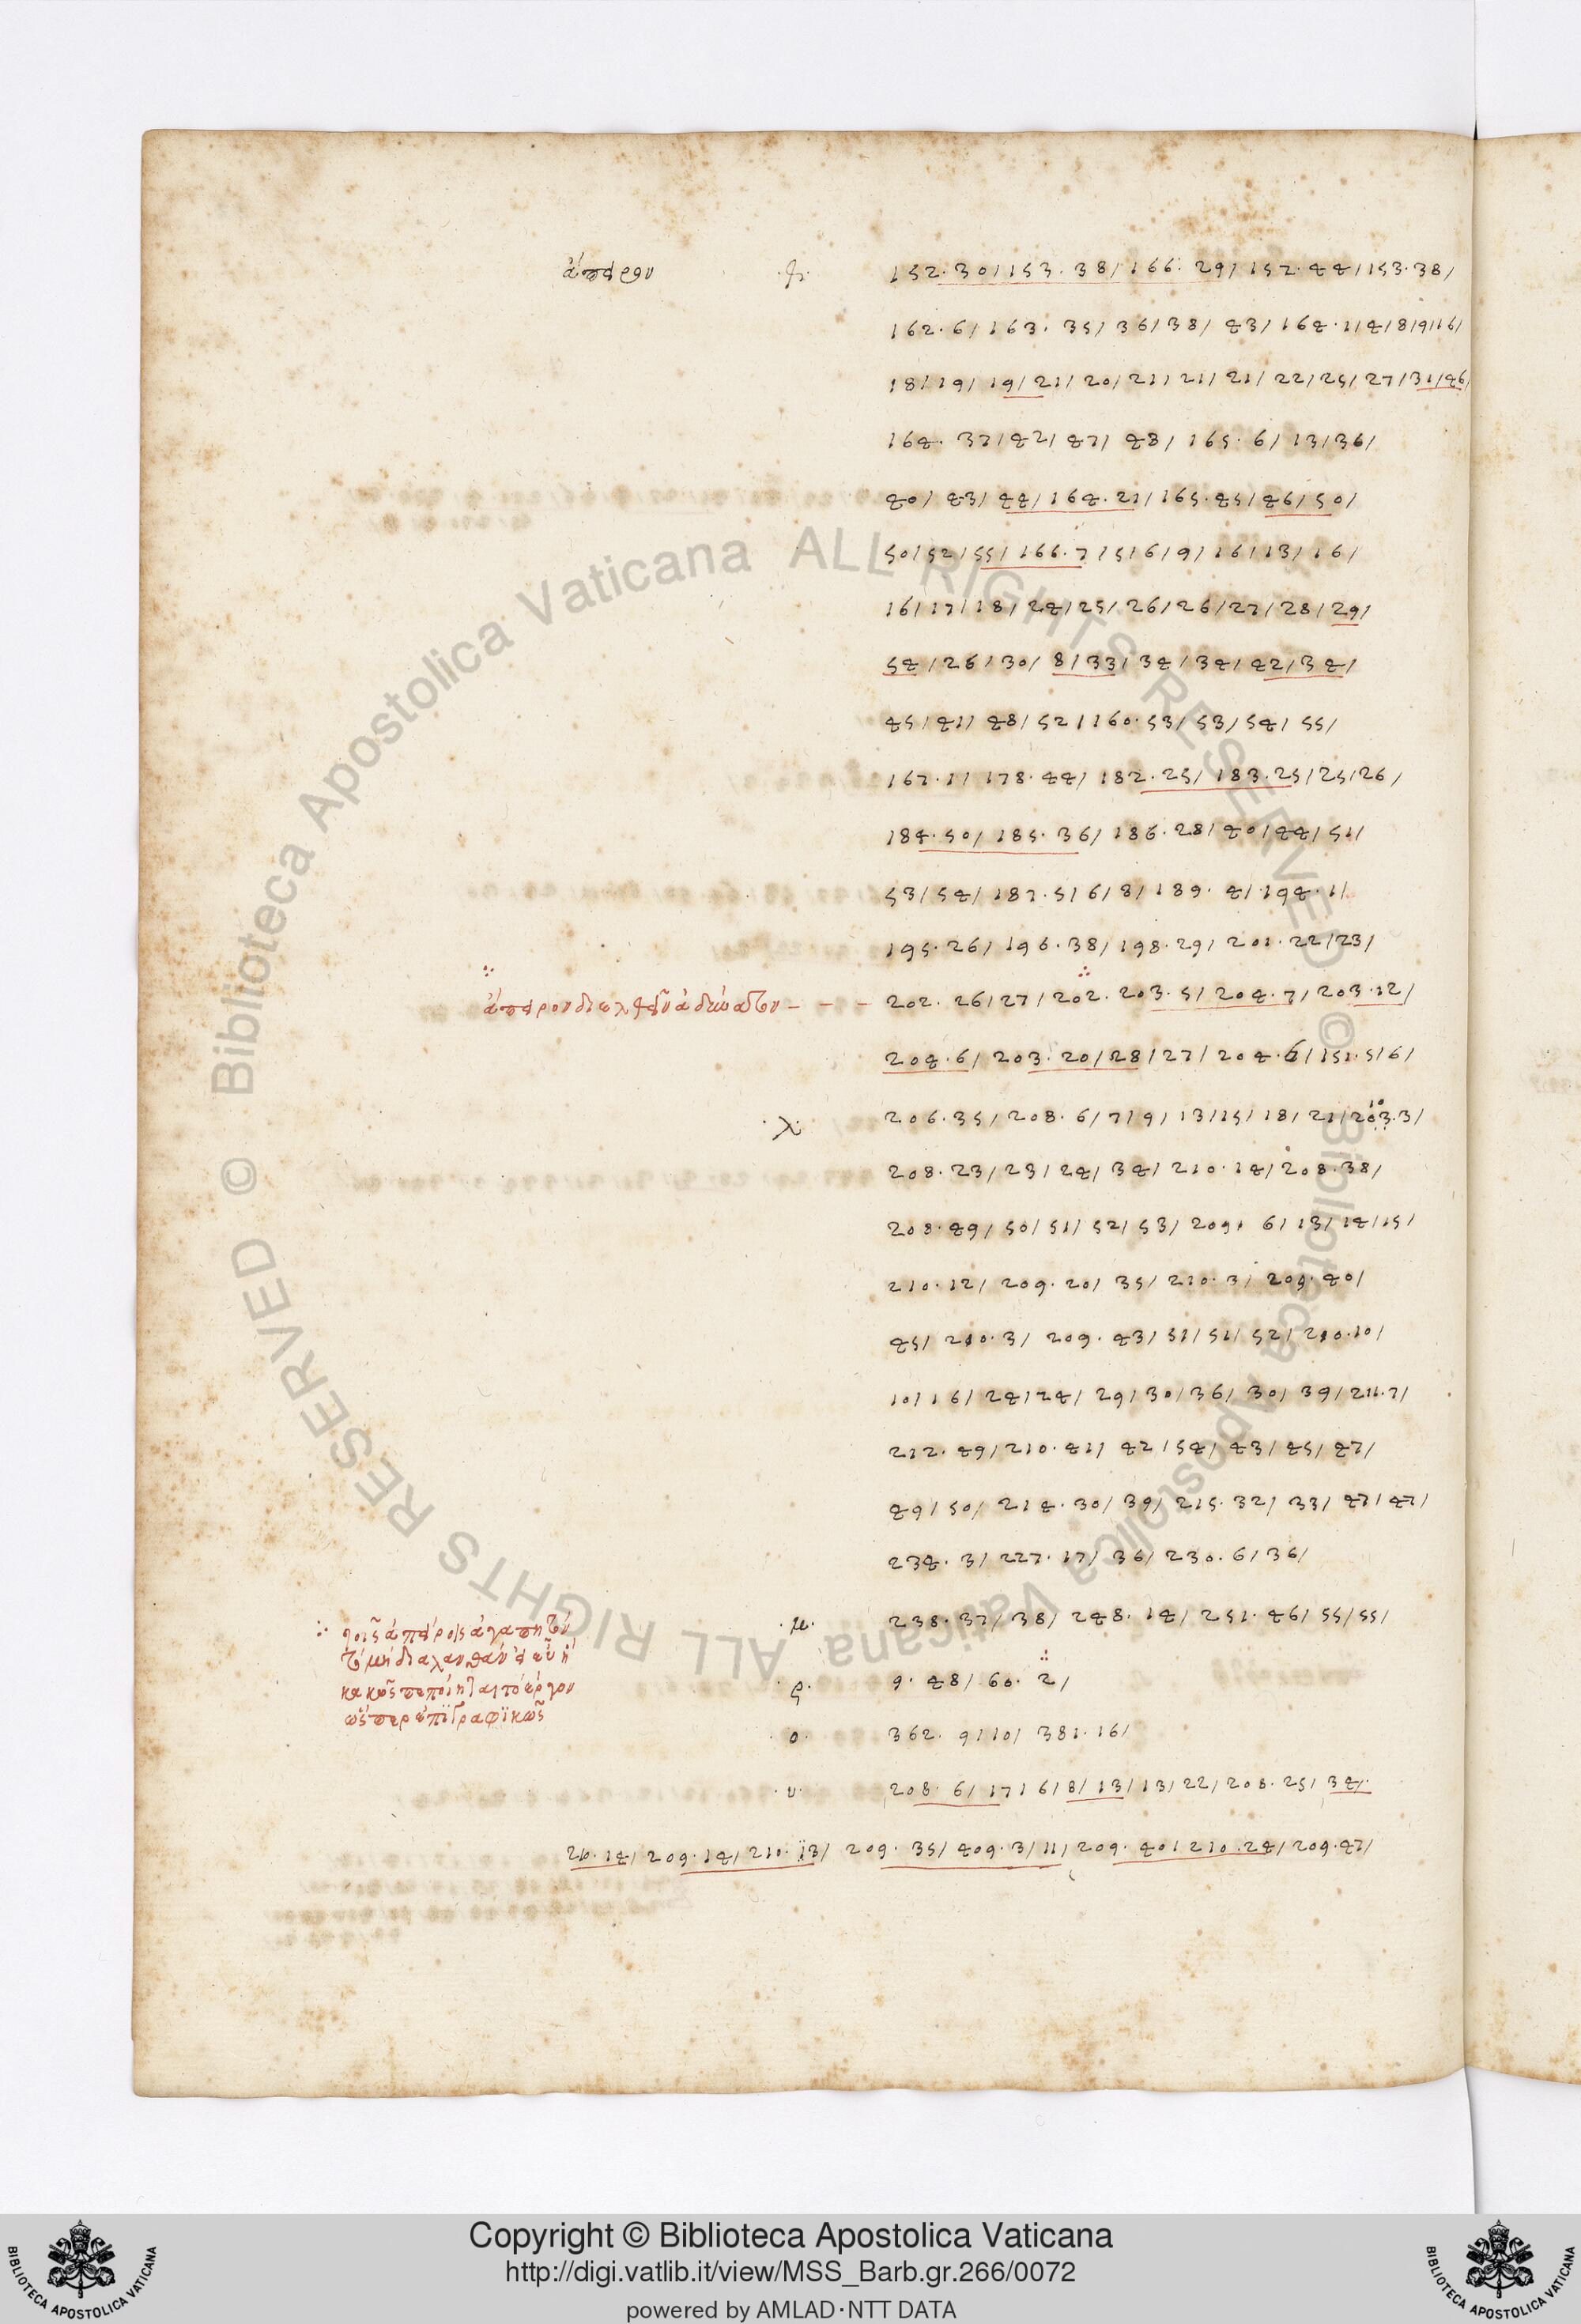 ἄπειρον ·φ· 152.30/153.38/166.29/152.44/153.38/
162.6/163.35/36/38/43/164.1/4/8/9/16/
18/19/19/21/20/21/21/21/22/25/27/31/46/
164.37/42/47/48/165.6/13/36/
40/43/44/164.21/165.45/46/50/
50/52/55/166.7/5/6/9/16/13/16/
16/17/18/24/25/26/26/27/28/29/
54/26/30/8/33/34/34/42/34/
45/41/48/52/160.53/53/54/55/
167.1/178.44/182.25/183.25/25/26/
184.50/185.36/186.28/40/44/51/
53/54/187.5/6/8/189.4/194.1/
195.26/196.38/198.29/201.22/23/
ἄπειρον διελθεῖν ἀδύνατον - - - 202.26/27/202.203.5/204.7/203.12/
204.6/203.20/28/27/204.6/151.5/6/
·λ· 206.35/208.6/7/9/13/15/18/21/203.3/
208.23/23/24/34/210.14/208.38/
208.49/50/51/52/53/209.6/13/14/15/
210.12/209.20/35/210.3/209.40/
45/210.3/209.43/51/51/52/210.10/
10/16/24/24/29/30/36/30/39/211.7/
212.49/210.41/42/54/43/45/47/
49/50/214.30/39/215.32/33/47/47/
234.3/227.17/36/230.6/36/
·μ· 238.37/38/248.14/251.46/55/55/
τοῖς ἀπείροις ἀγαπητὸν
τὸ μὴ διαλανθάνειν εὖ ἢ
κακῶς πεποίηται τὸ ἔργον
ὥσπερ ἐπὶ γραφικῶς
·ς· 9.48/60.2/
·ο· 362.9/10/381.16/
·υ· 208.6/17/6/8/13/13/22/208.25/34/.
210.14/209.14/210.13/209.35/409.3/11/209.40/210.24/209.47/
Copyright © Biblioteca Apostolica Vaticana
http://digi.vatlib.it/view/MSS_Barb.gr.266/0072
powered by AMLAD·NTT DATA